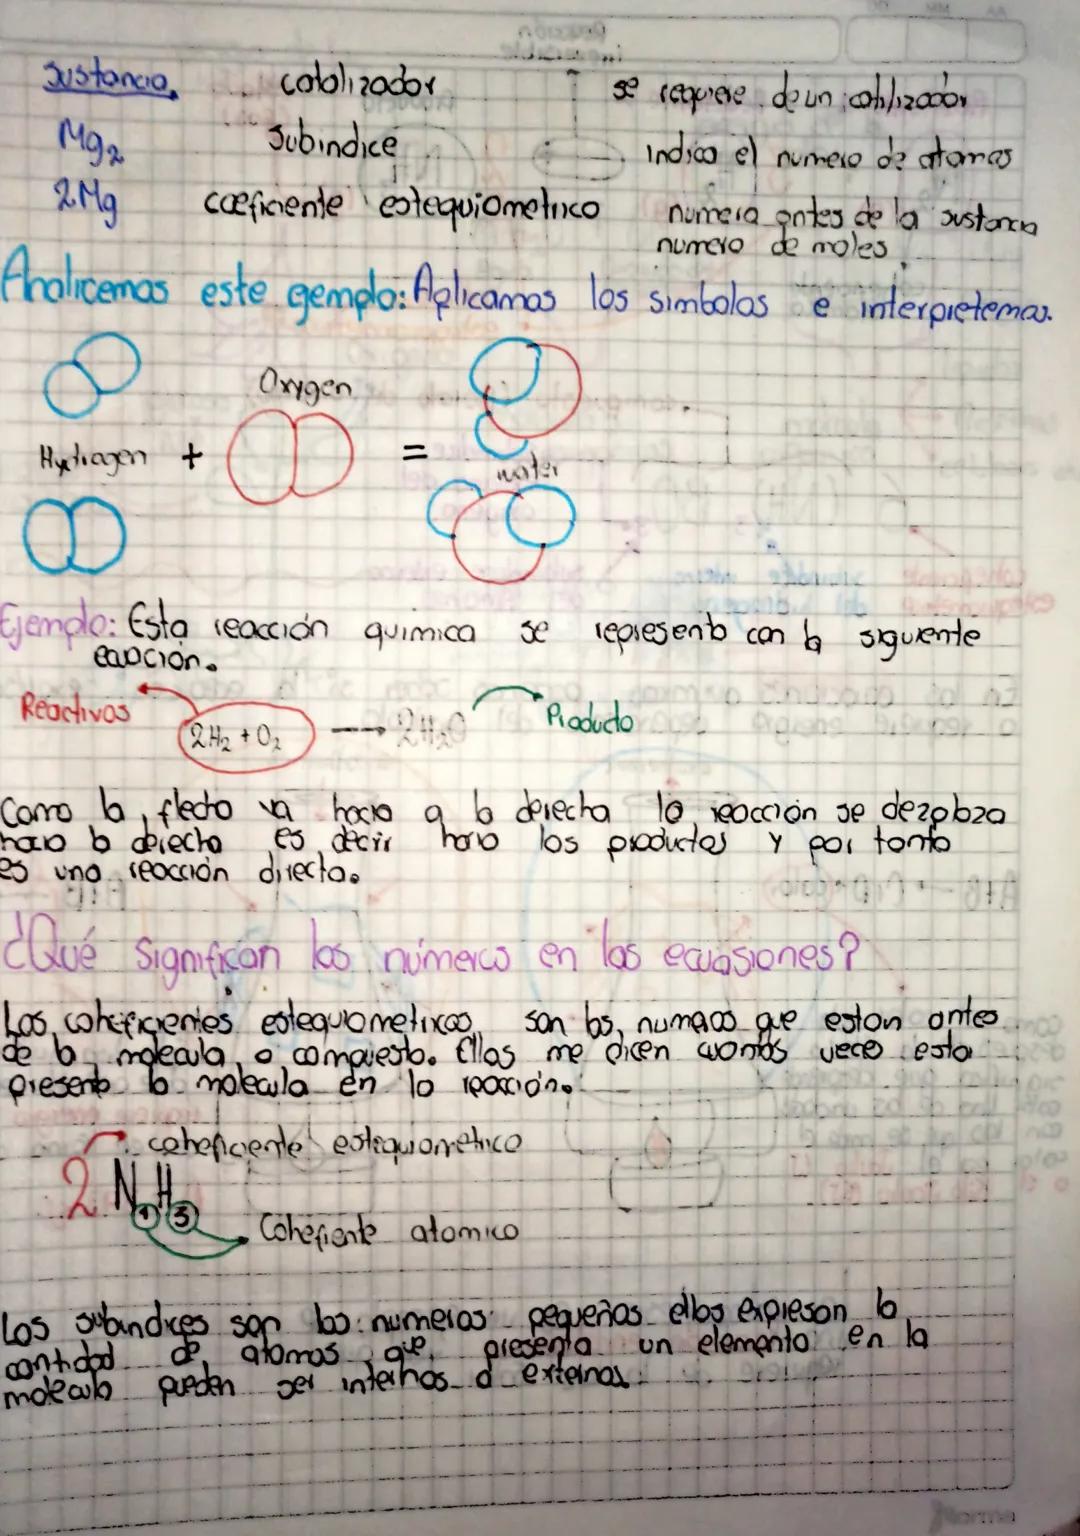 Sustancia catalizador se requiere de un catalizador
Mg2 Subindice indica el numero de atomos
2Mg coeficiente estequiometrico numero antes de la sustancia
numero de moles.
Analicemos este ejemplo: Aplicamos los simbolos e interpretemos.
Oxygen
Hydrogen + =
water
Ejemplo: Esta reacción quimica se representa con la siguiente
ecuación.
Reactivos 2H2 + O2 → 2H2O Producto
Como la flecha va hacia a la derecha la reacción se dezplaza
hacia la derecha es decir hacia los productos y por tanto
es una reacción directa.
¿Qué significan los números en las ecuasiones?
Los coheficientes estequiometricos son los numeros que estan antes
de la molecula o compuesto. Ellos me dicen cuantas veces esta
presente la molecula en la reacción.
coheficiente estequiometrico
2 N1H3
Cohefiente atomico
Los subindices son los numeros pequeños ellos expresan la
cantidad de atomos que presenta un elemento en la
molecula pueden ser internos o externos.